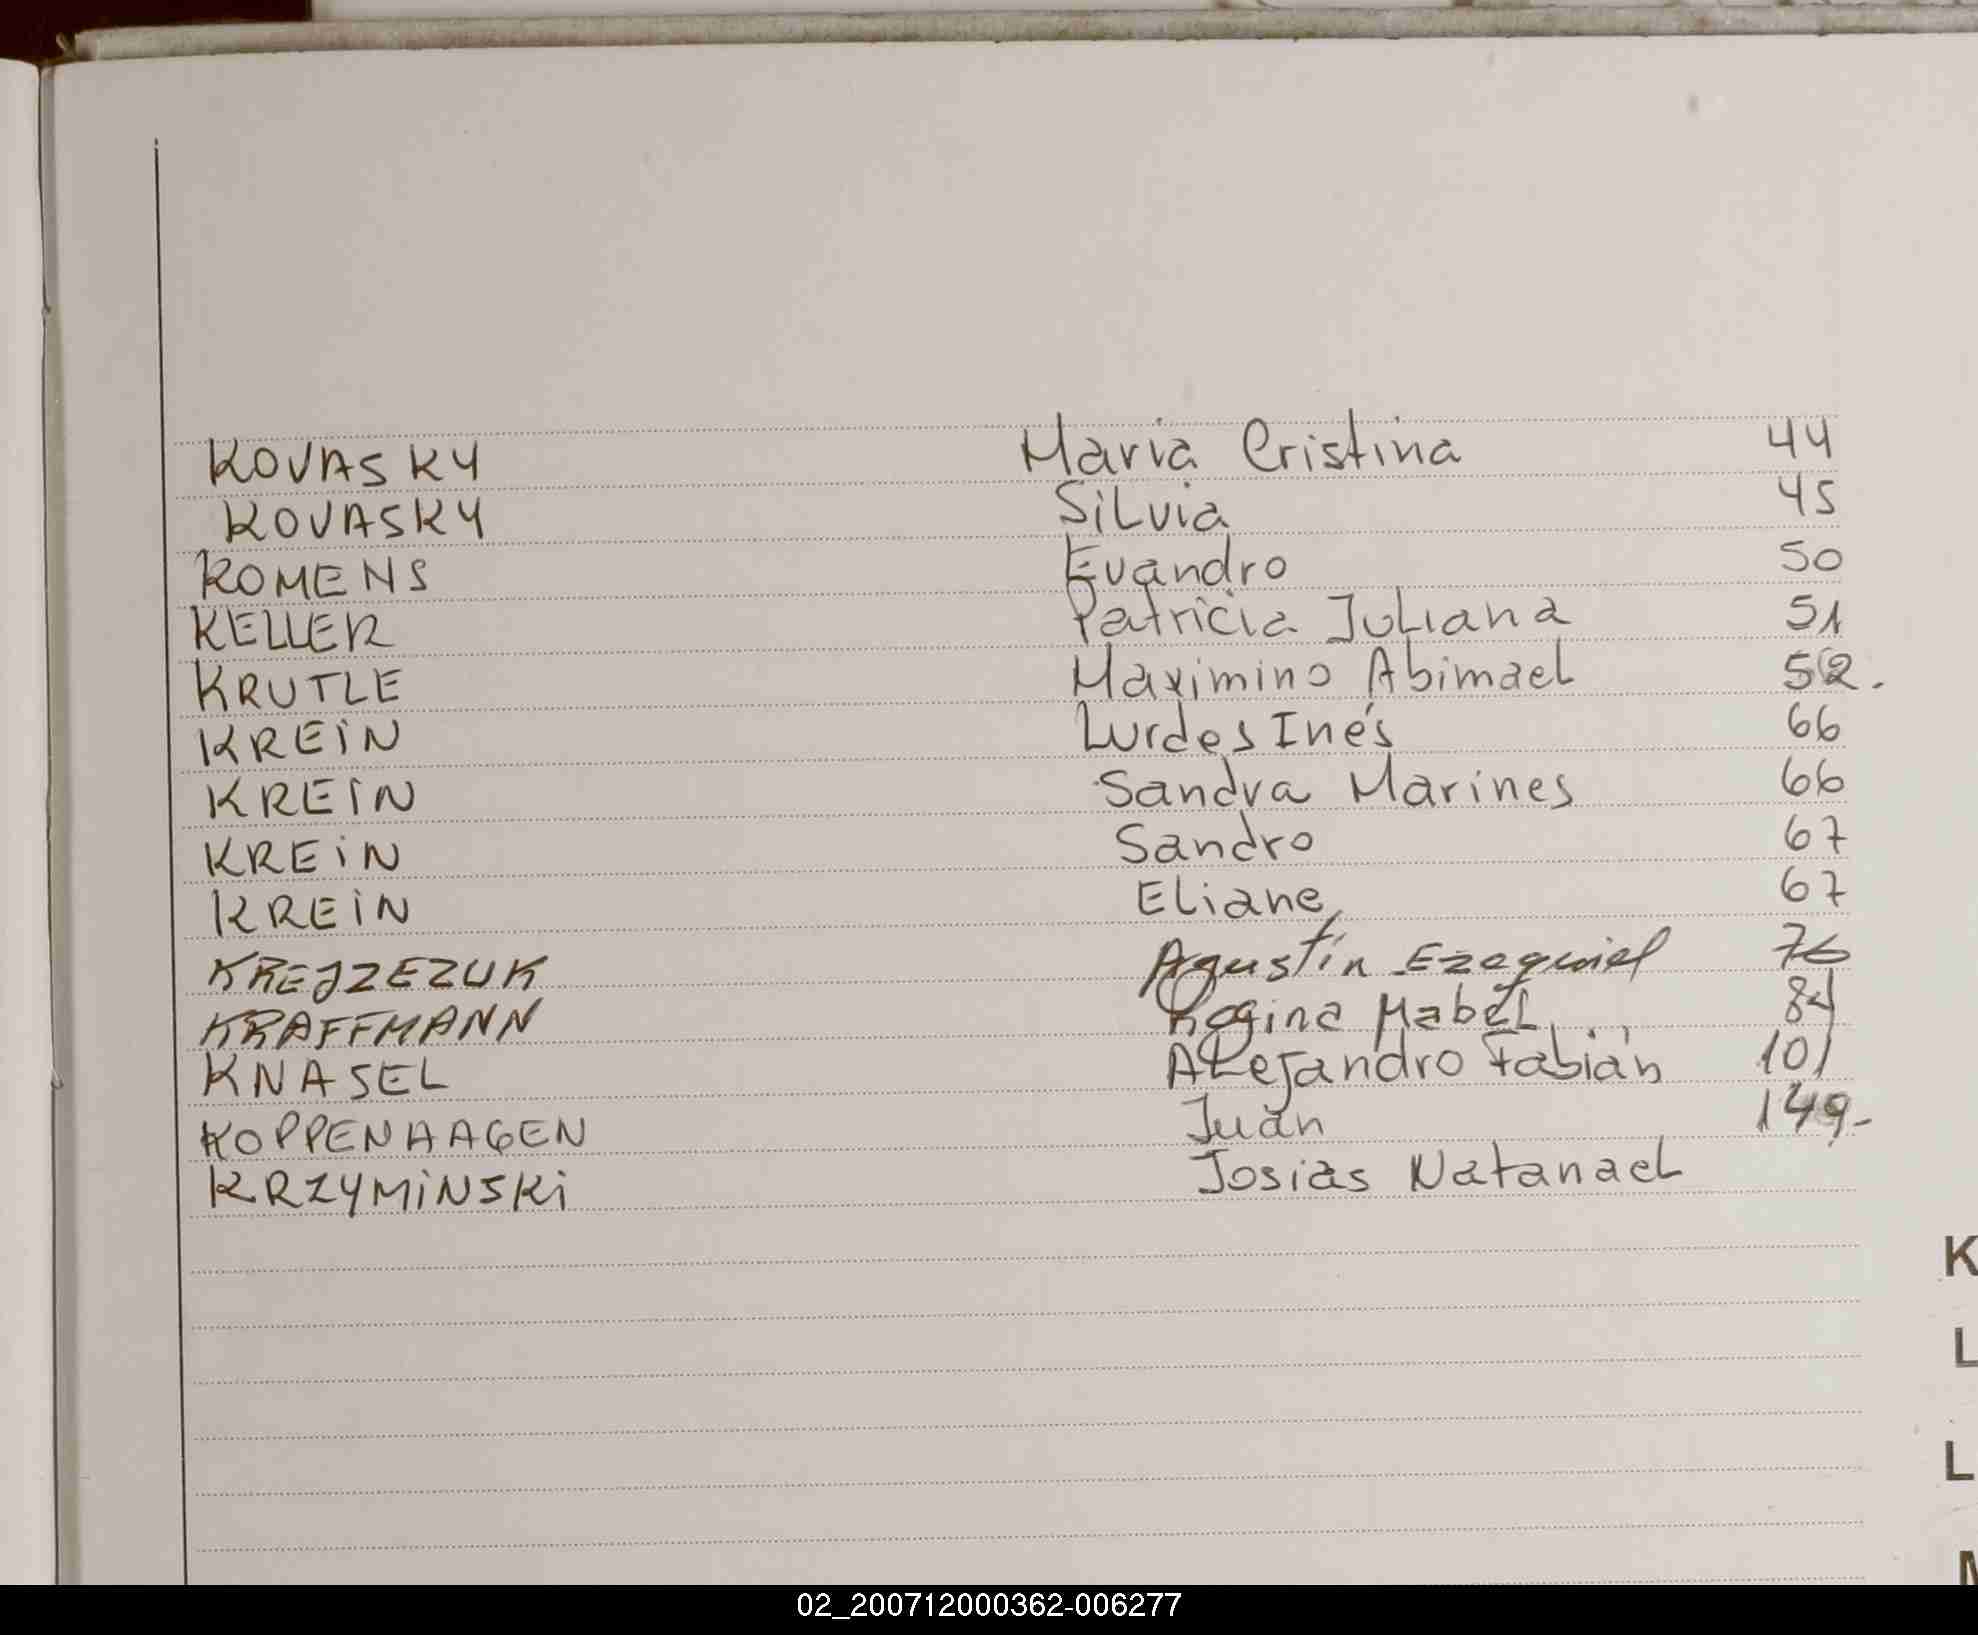 KOVASKY María Cristina 44
KOVASKY Silvia 45
KOMENS Evandro 50
KELLER Patricia Juliana 51
KRUTLE Maximino Abimael 52.
KREIN Lurdes Inés 66
KREIN Sandra Marines 66
KREIN Sandro 67
KREIN Eliane 67
KREJZEZUK Agustín Ezequiel 76
KRAFFMANN Regina Mabel
KNASEL Alejandro Fabián 101
KOPPENHAGEN Juan 149-
KRZYMINSKI Josias Natanael
K
L
L
02_200712000362-006277